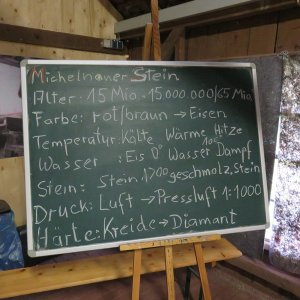 Michelnauer Stein
Alter: 15 Mio = 15.000.000/65 Mio
Farbe: rot/braun → Eisen
Temperatur: Kälte Wärme Hitze
Wasser : Eis 0° Wasser 100° Dampf
Stein: Stein 1200 geschmolz. Stein
Druck: Luft → Pressluft 1:1000
Härte: Kreide → Diamant